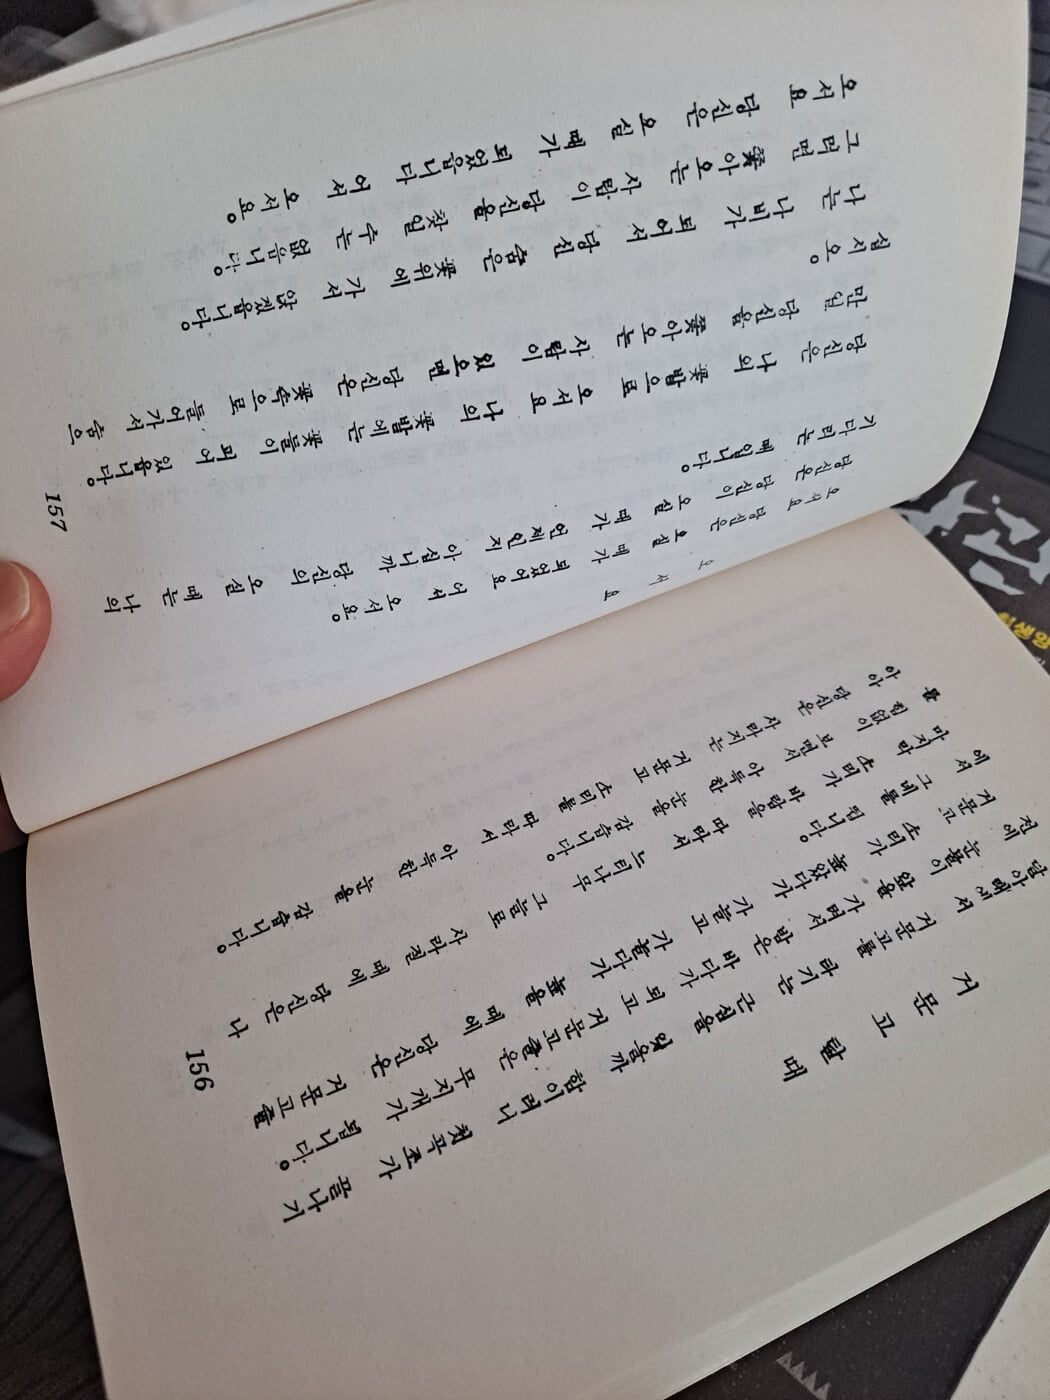 거문고 탈 때
달아래에서 거문고를 타기는 근심을 잊을까 함이러니 첫곡조가 끝나기
전에 눈물이 앞을 가려서 밤은 바다가 되고 거문고줄은 무지개가 됩니다。
거문고 소리가 높았다가 가늘고 가늘다가 높을 때에 당신은 거문고줄
에서 그네를 뜁니다。
마지막 소리가 바람을 따라서 느티나무 그늘로 사라질 때에 당신은 나
를 힘없이 보면서 아득한 눈을 감습니다。
아아 당신은 사라지는 거문고 소리를 따라서 아득한 눈을 감습니다。
156
오 서 요
오서요 당신은 오실 때가 되었어요 어서 오서요。
당신은 당신이 오실 때가 언제인지 아십니까 당신의 오실 때는 나의
기다리는 때입니다。
당신은 나의 꽃밭으로 오서요 나의 꽃밭에는 꽃들이 피어 있읍니다。
만일 당신을 쫓아오는 사람이 있으면 당신은 꽃속으로 들어가서 숨으
십시오。
나는 나비가 되어서 당신 숨은 꽃위에 가서 앉겠읍니다。
그러면 쫓아오는 사람이 당신을 찾일 수는 없읍니다。
오서요 당신은 오실 때가 되었읍니다 어서 오서요。
157